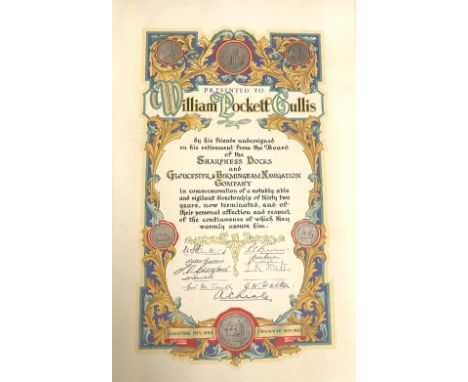 PRESENTED TO
William Pockett Cullis
by his friends undersigned
on his retirement from the Board
of the
SHARPNESS DOCKS
and
GLOUCESTER & BIRMINGHAM NAVIGATION
COMPANY
in commemoration of a notably able
and vigilant directorship of thirty two
years, now terminated, and of
their personal affection and respect
of the continuance of which they
warmly assure him.
DIRECTOR
CHAIRMAN